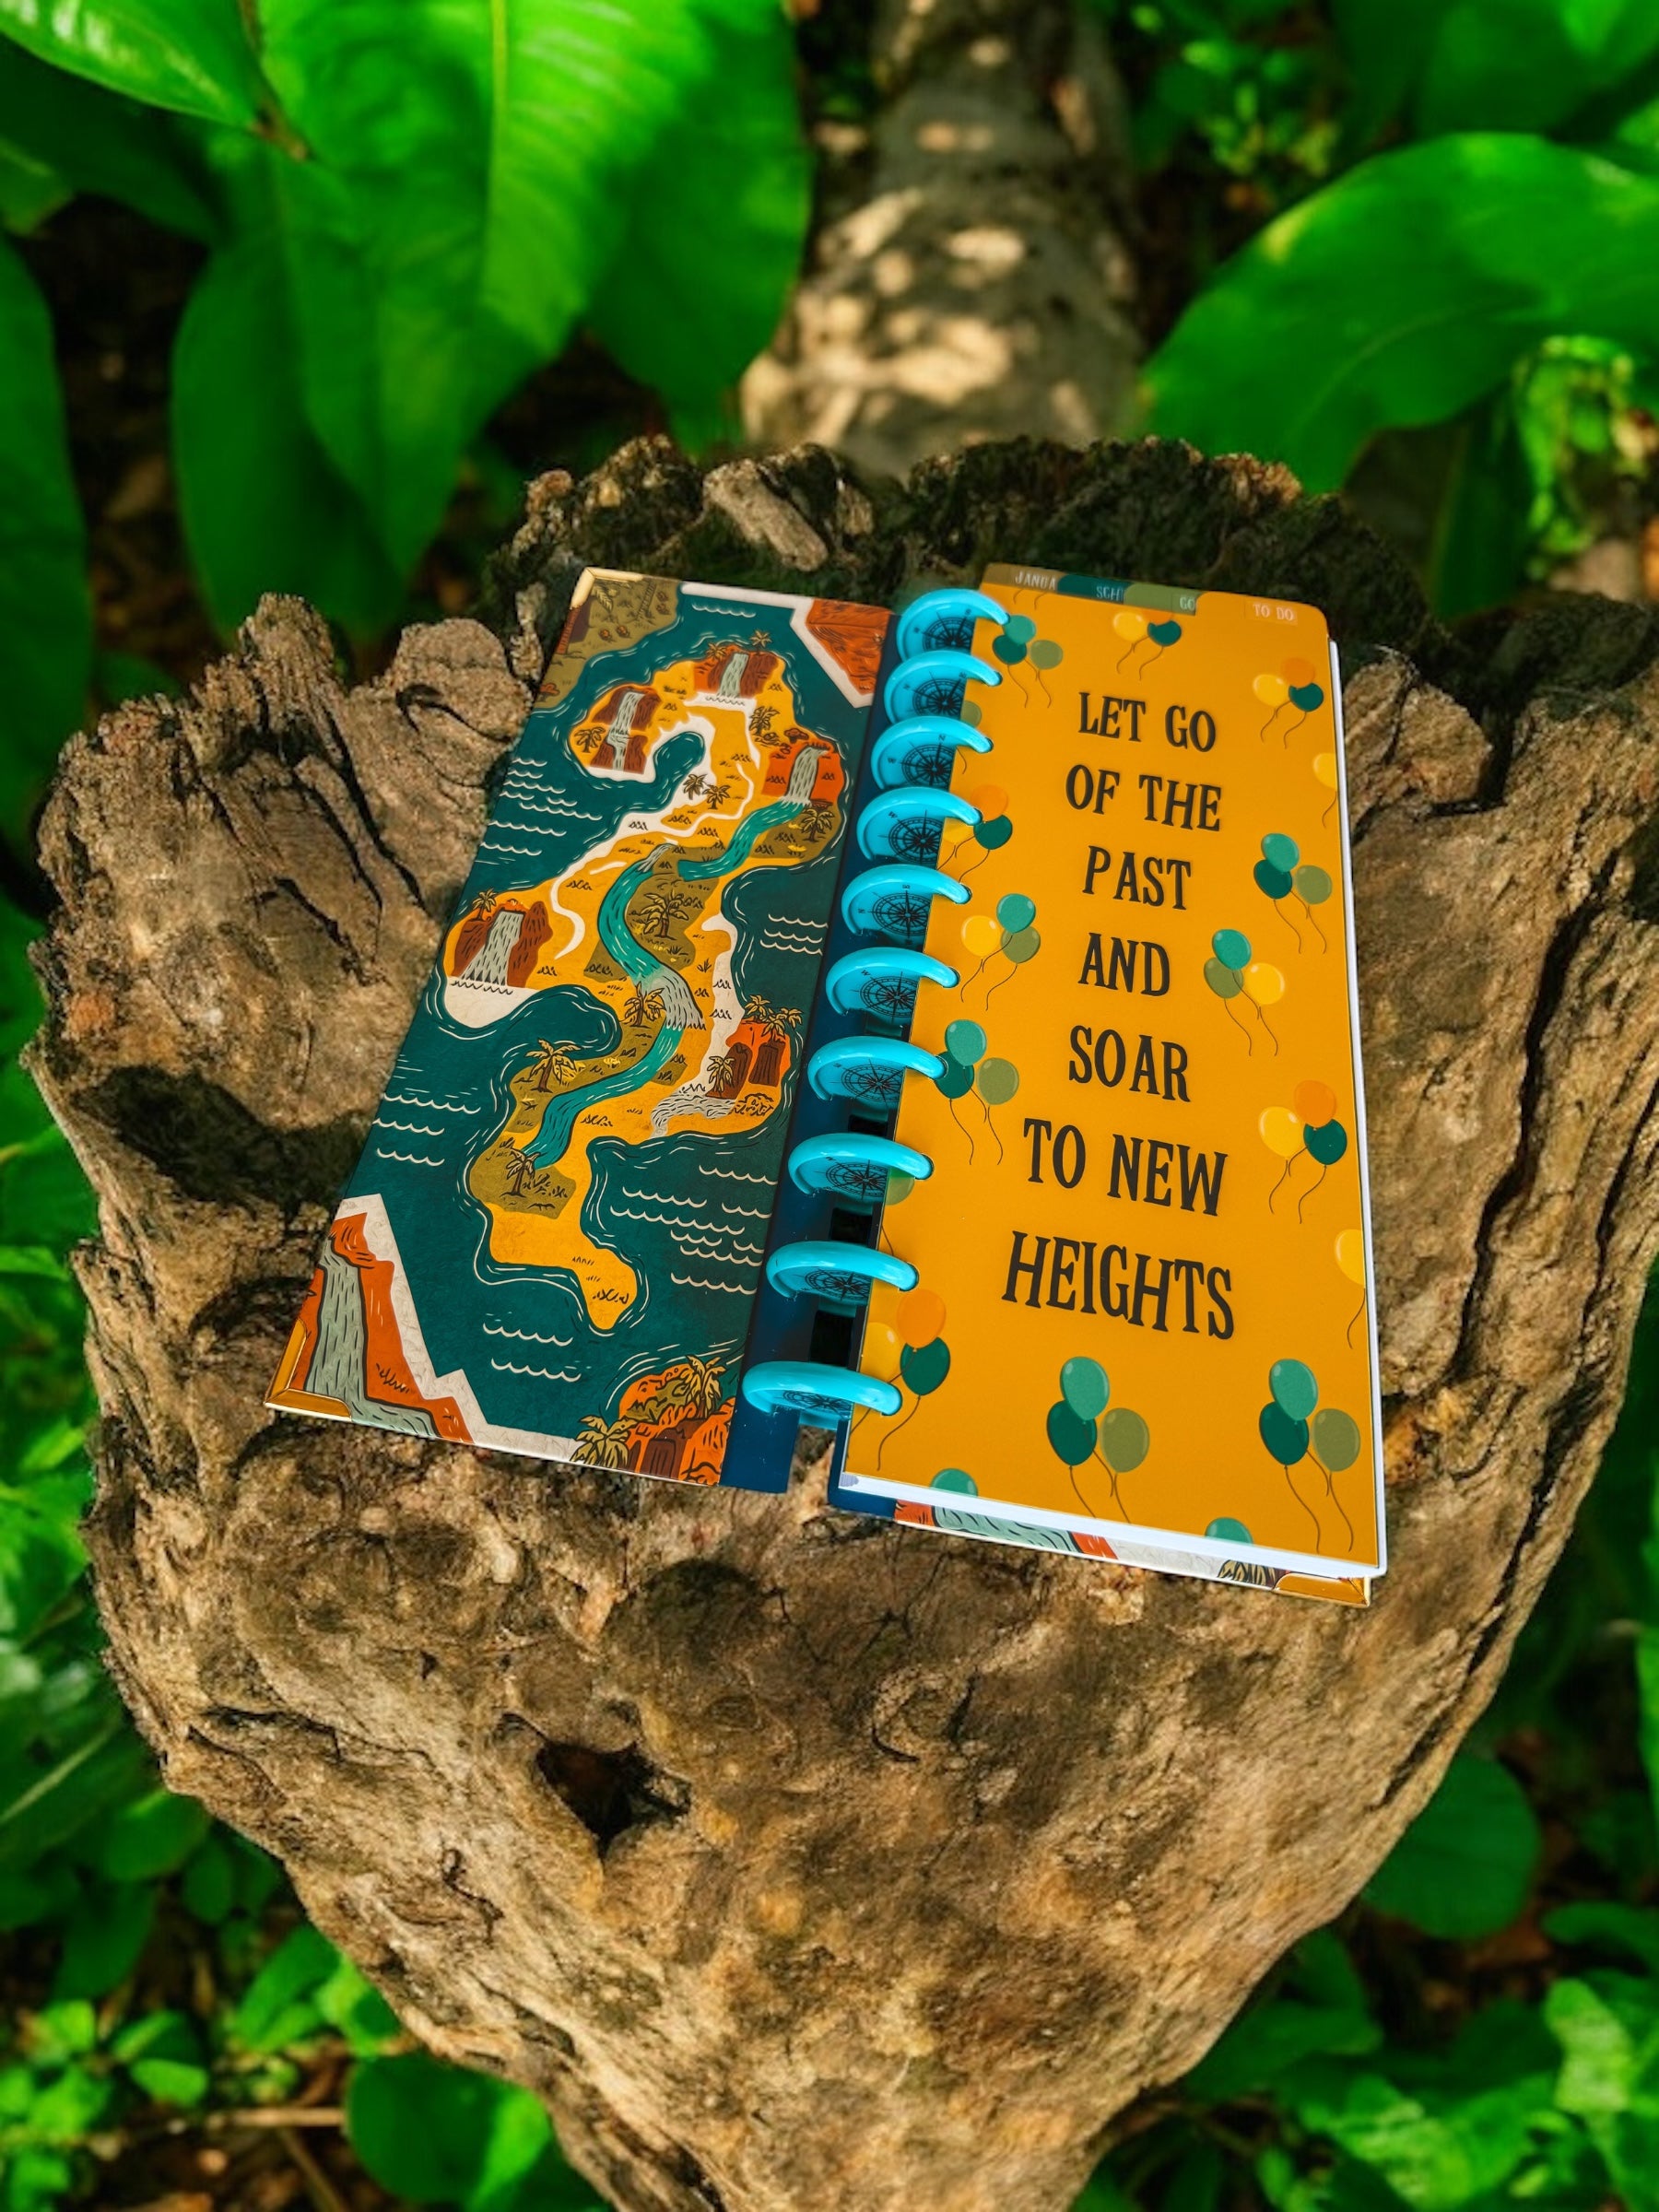 TO DO
LET GO
OF THE
PAST
AND
SOAR
TO NEW
HEIGHTS